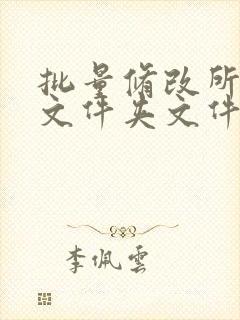 批量修改所
文件夹文件
李佩雲